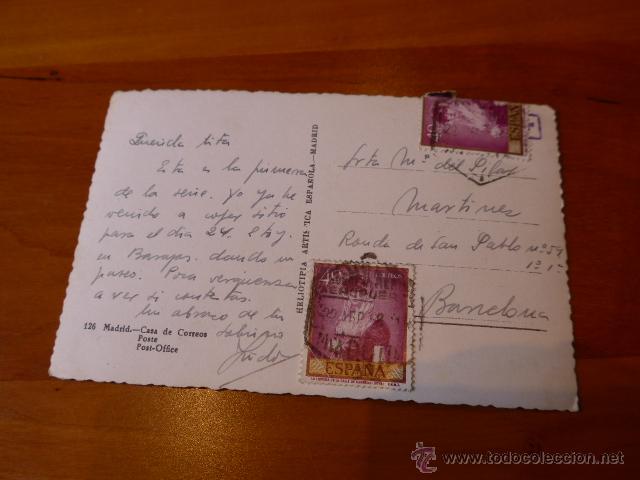 Querida tita
Esta es la primera
de la serie. Yo ya he
venido a coger sitio
para el dia 24. Estoy
en Barajas. dando un
paseo. Poca verguenza
a ver si contestas.
Un abrazo de tu
sobrino
126 Madrid.—Casa de Correos
Poste
Post-Office
HELIOTIPIA ARTISTICA ESPAÑOLA.—MADRID
ESPAÑA
Srta Mª del Pilar
Martinez
Ronda de San Pablo nº 59
1º 1ª
Barcelona
40
CORREOS
ESPAÑA
© www.todocoleccion.net